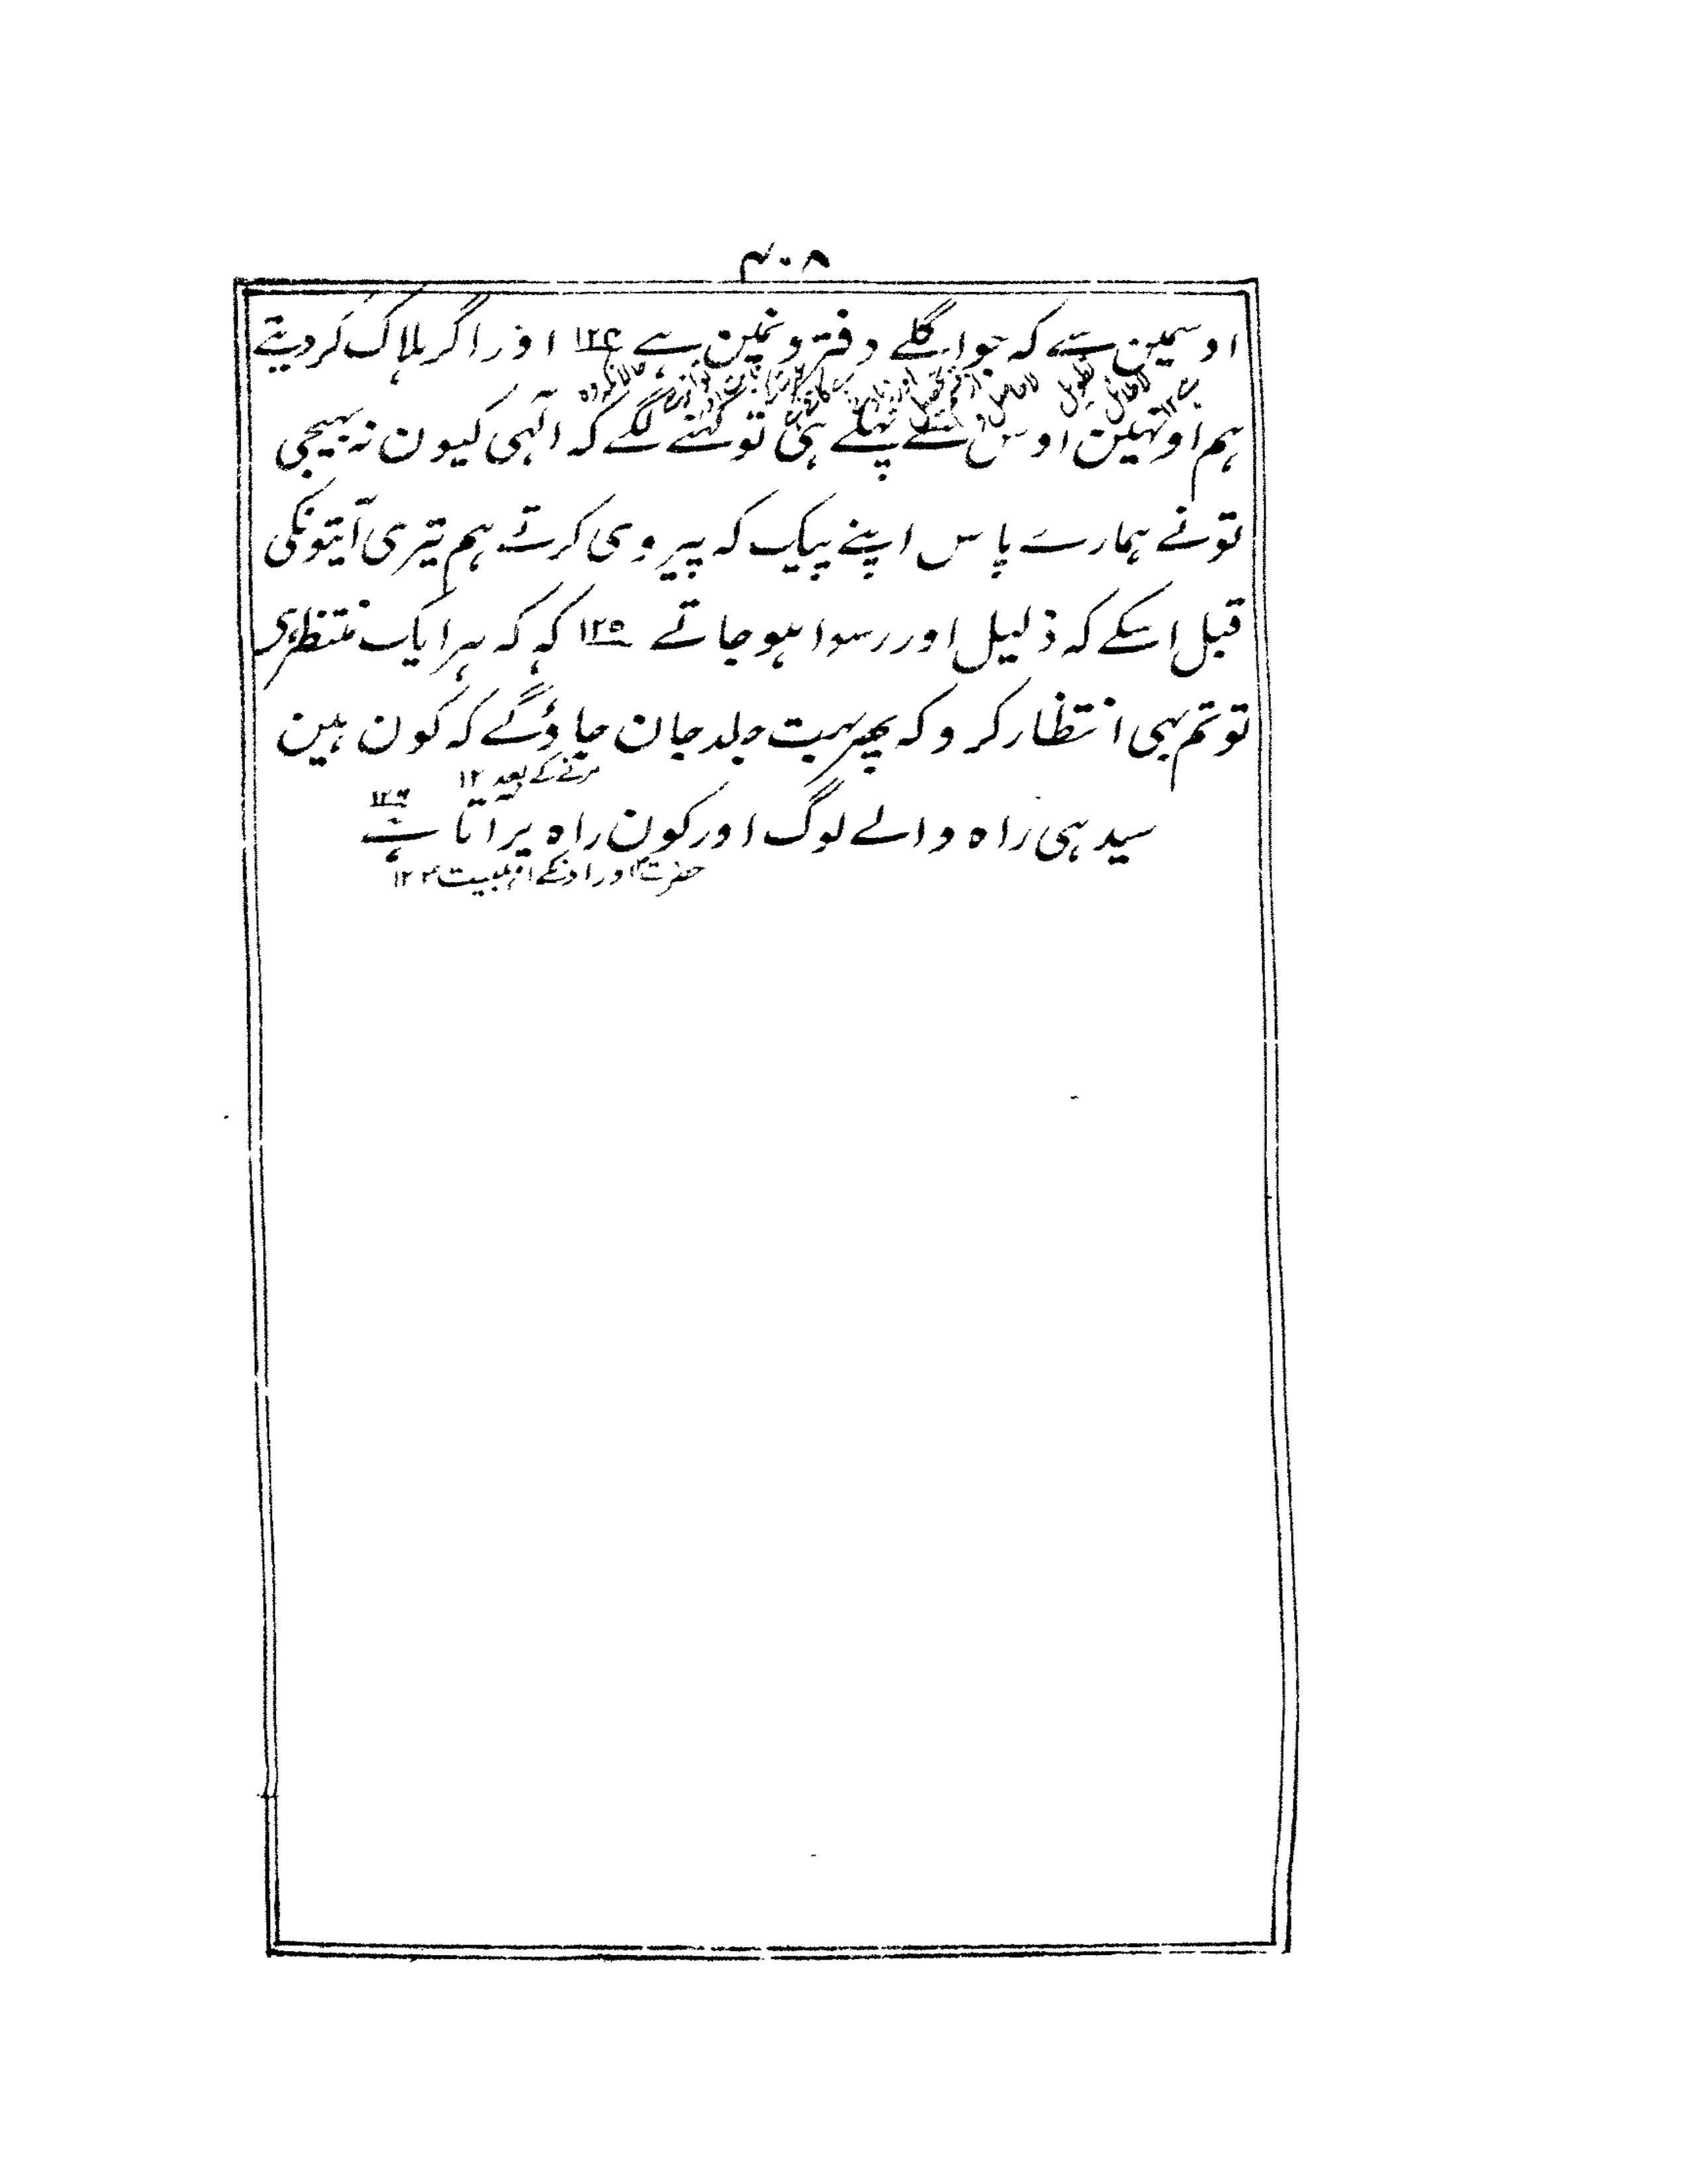 ۴۰۸
اوسمین سے کہ جو اگلے دفترونمین ہے ۱۲۴ اور اگر ہلاک کر دیتے
ہم اونہین اوس سے پہلے ہی تو کہنے لگے کہ الٰہی کیون نہ بہیجی
تونے ہمارے پاس اپنے پیک کہ پیروی کرتے ہم تیری آیتونکی
قبل اسکے کہ ذلیل اور رسوا ہو جاتے ۱۲۵ کہہ کہ ہر ایک منتظر ہی
تو تم بہی انتظار کرو کہ پھر بہت جلد جان جاؤگے کہ کون ہین
مرنے کے بعد ۱۲
سیدہی راہ والے لوگ اور کون راہ پر اتا ہے
حضرت اور اونکے اہلبیت ۱۲